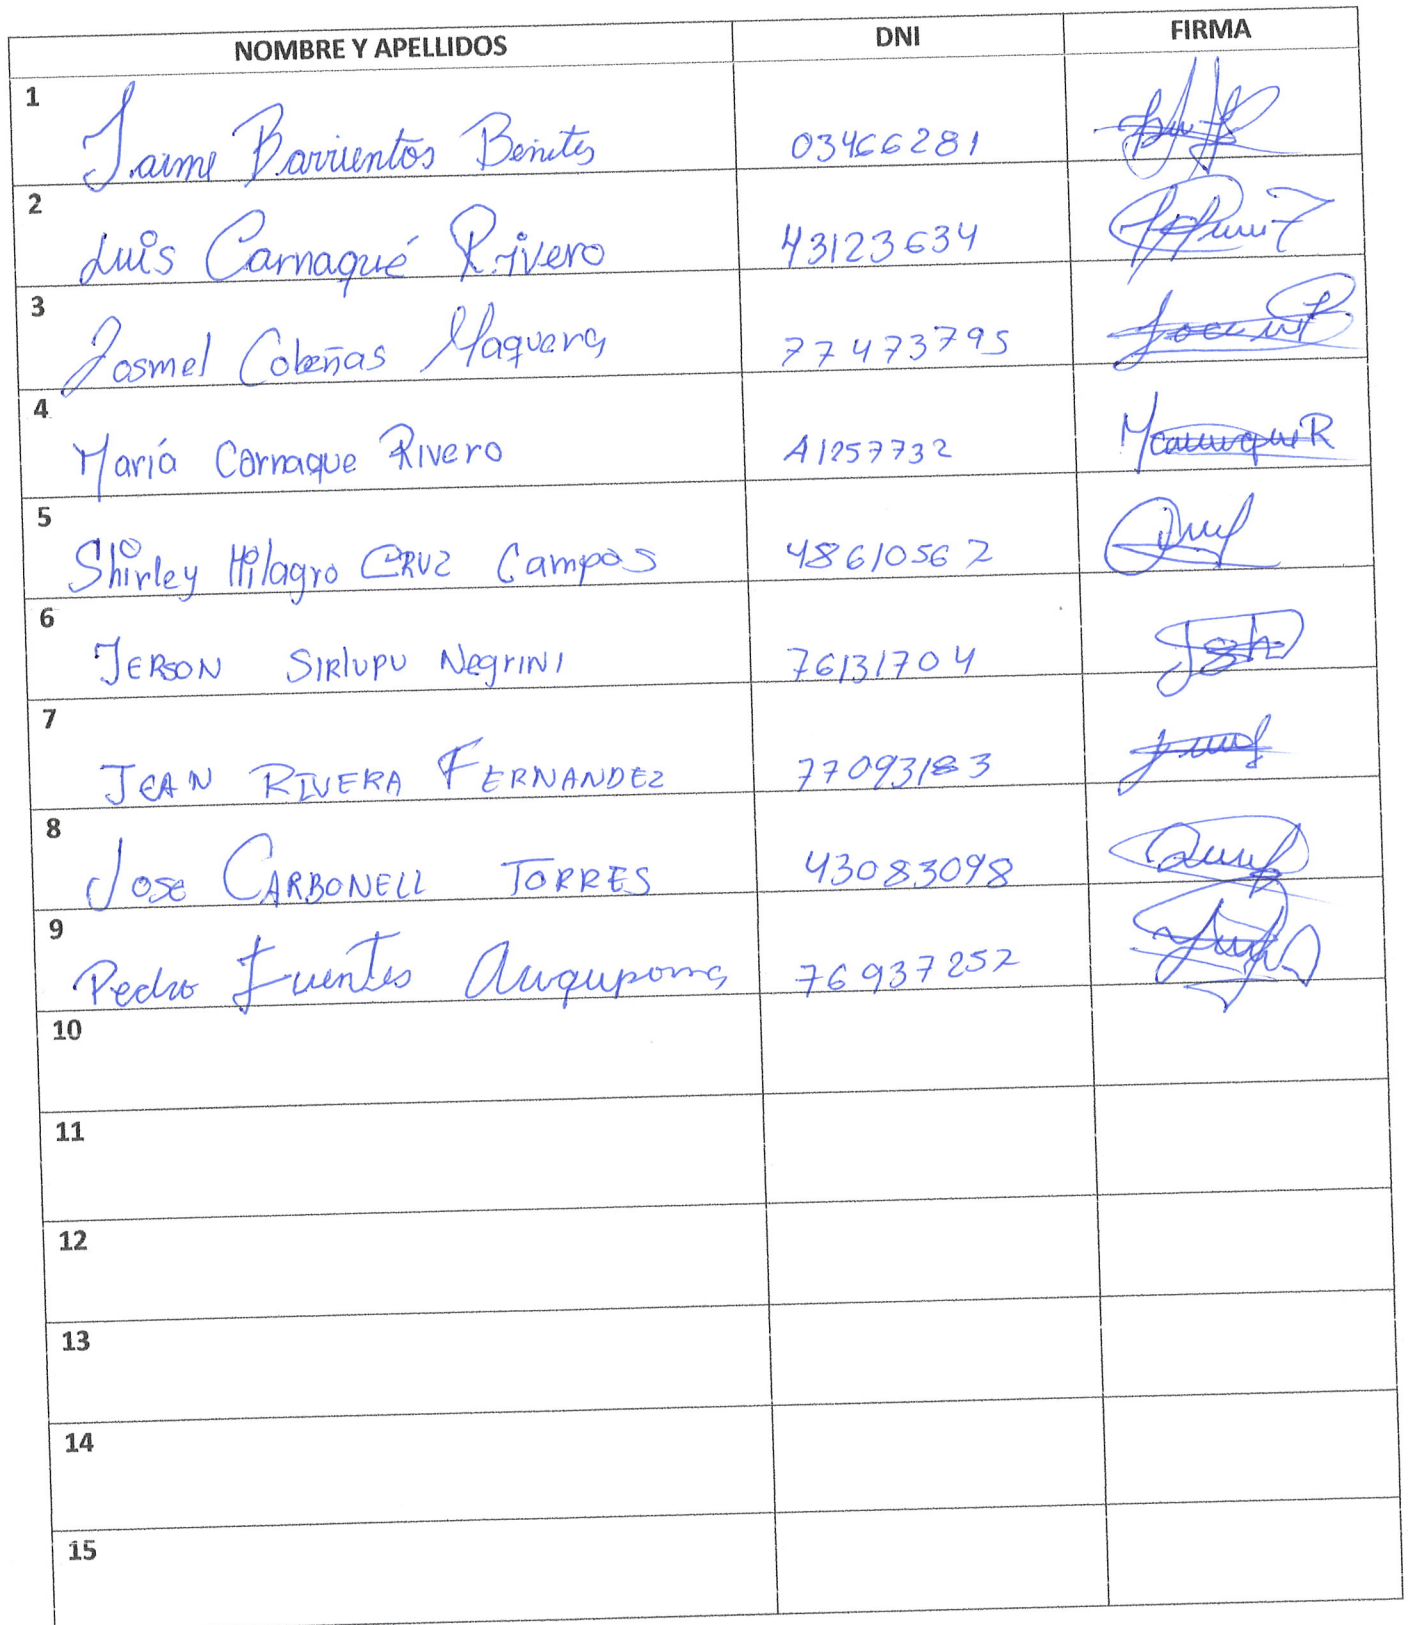 NOMBRE Y APELLIDOS DNI FIRMA
1 Jaime Barrientos Benites 03466281
2 Luis Carnaqué Rivero 43123634
3 Josmel Cobeñas Maquera 77473795
4 María Carnaque Rivero A1257732
5 Shirley Milagro CRUZ Campos 48610562
6 JERSON SIRlUPU NegrINI 76131704
7 JEAN RIVERA FERNANDEZ 77093183
8 Jose CARBONELL TORRES 43083098
9 Pedro Fuentes Auquipoma 76937252
10
11
12
13
14
15